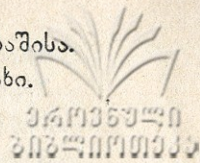 აშისა.
ხი.
ეროვნული
ბიბლიოთეკა